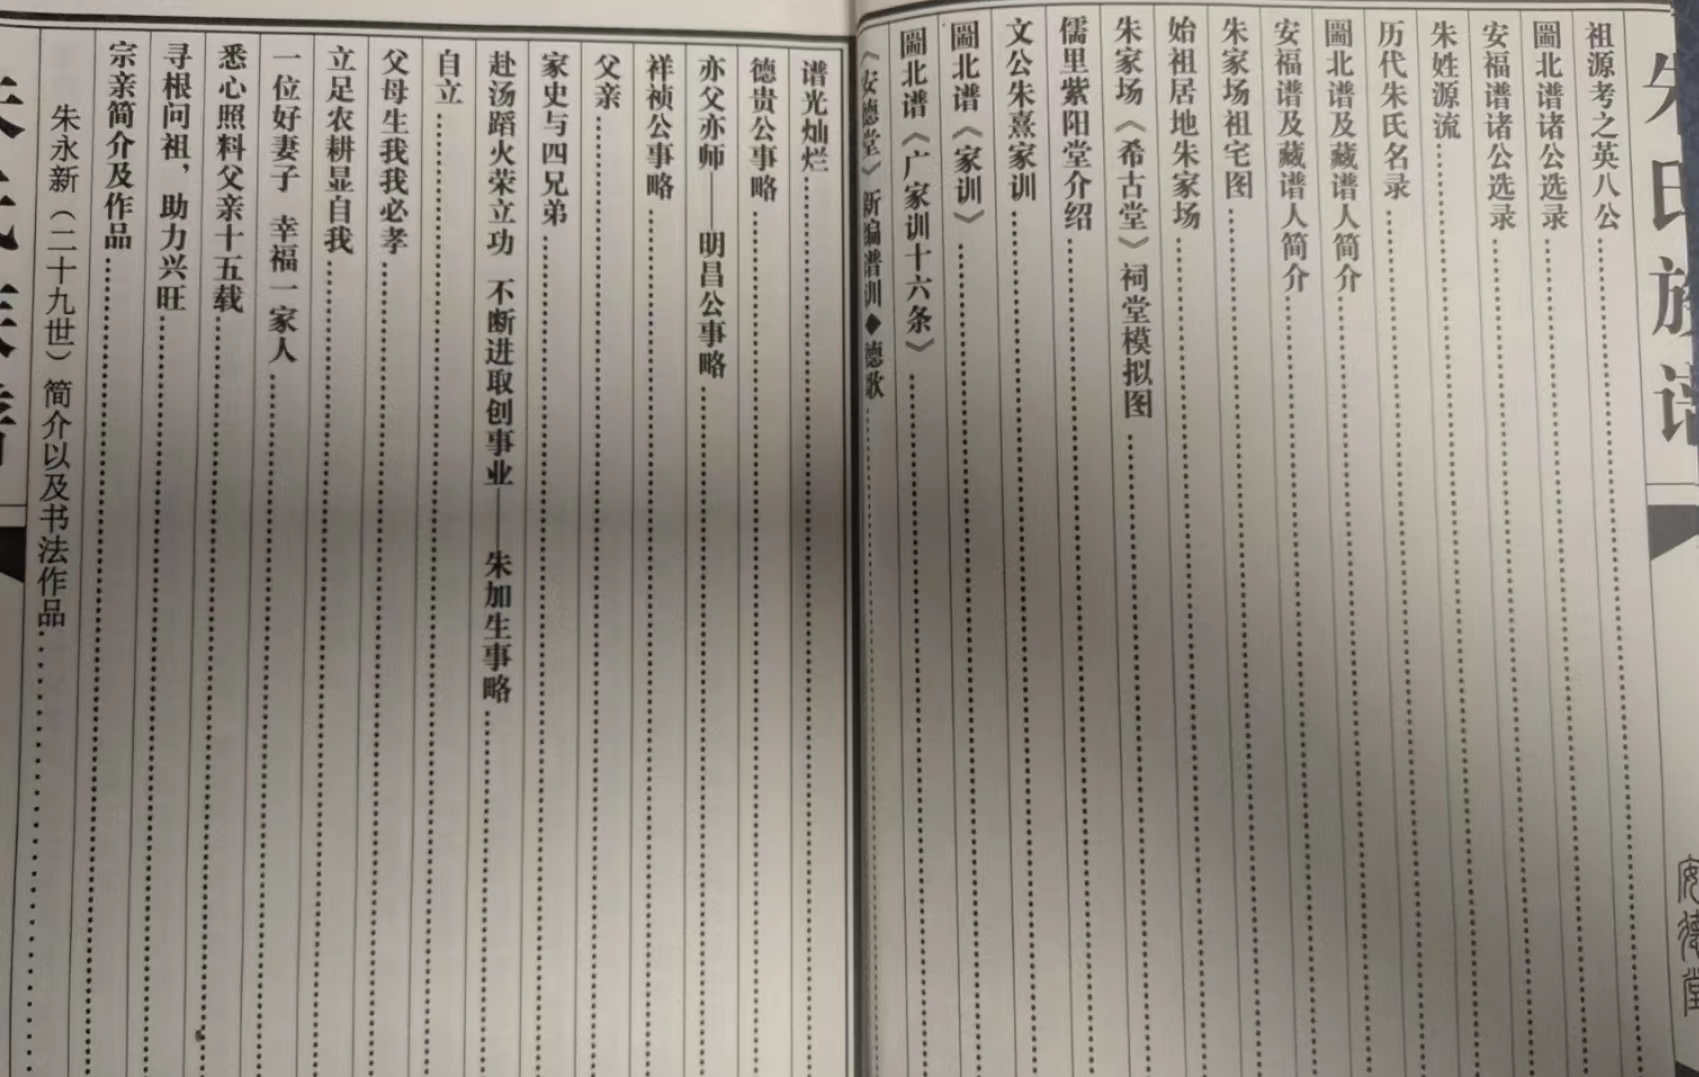 朱氏族谱
安德堂
祖源考之英八公
圖北谱诸公选录
安福谱诸公选录
朱姓源流
历代朱氏名录
圖北谱及藏谱人简介
安福谱及藏谱人简介
朱家场祖宅图
始祖居地朱家场
朱家场《希古堂》祠堂模拟图
儒里紫阳堂介绍
文公朱熹家训
圖北谱《家训》
圖北谱《广家训十六条》
《安德堂》新编谱训◆德歌
谱光灿烂
德贵公事略
亦父亦师——明昌公事略
祥祯公事略
父亲
家史与四兄弟
赴汤蹈火荣立功 不断进取创事业——朱加生事略
自立
父母生我我必孝
立足农耕显自我
一位好妻子 幸福一家人
悉心照料父亲十五载
寻根问祖，助力兴旺
宗亲简介及作品
朱永新（二十九世）简介以及书法作品